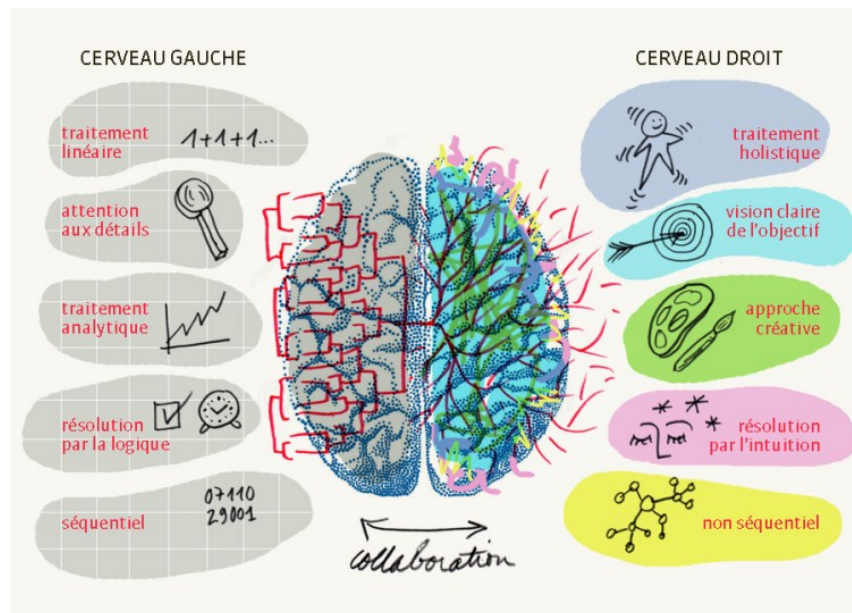 CERVEAU GAUCHE
traitement
linéaire
1+1+1...
attention
aux détails
traitement
analytique
résolution
par la logique
séquentiel
07110
29001
CERVEAU DROIT
traitement
holistique
vision claire
de l'objectif
approche
créative
résolution
par l'intuition
non séquentiel
collaboration